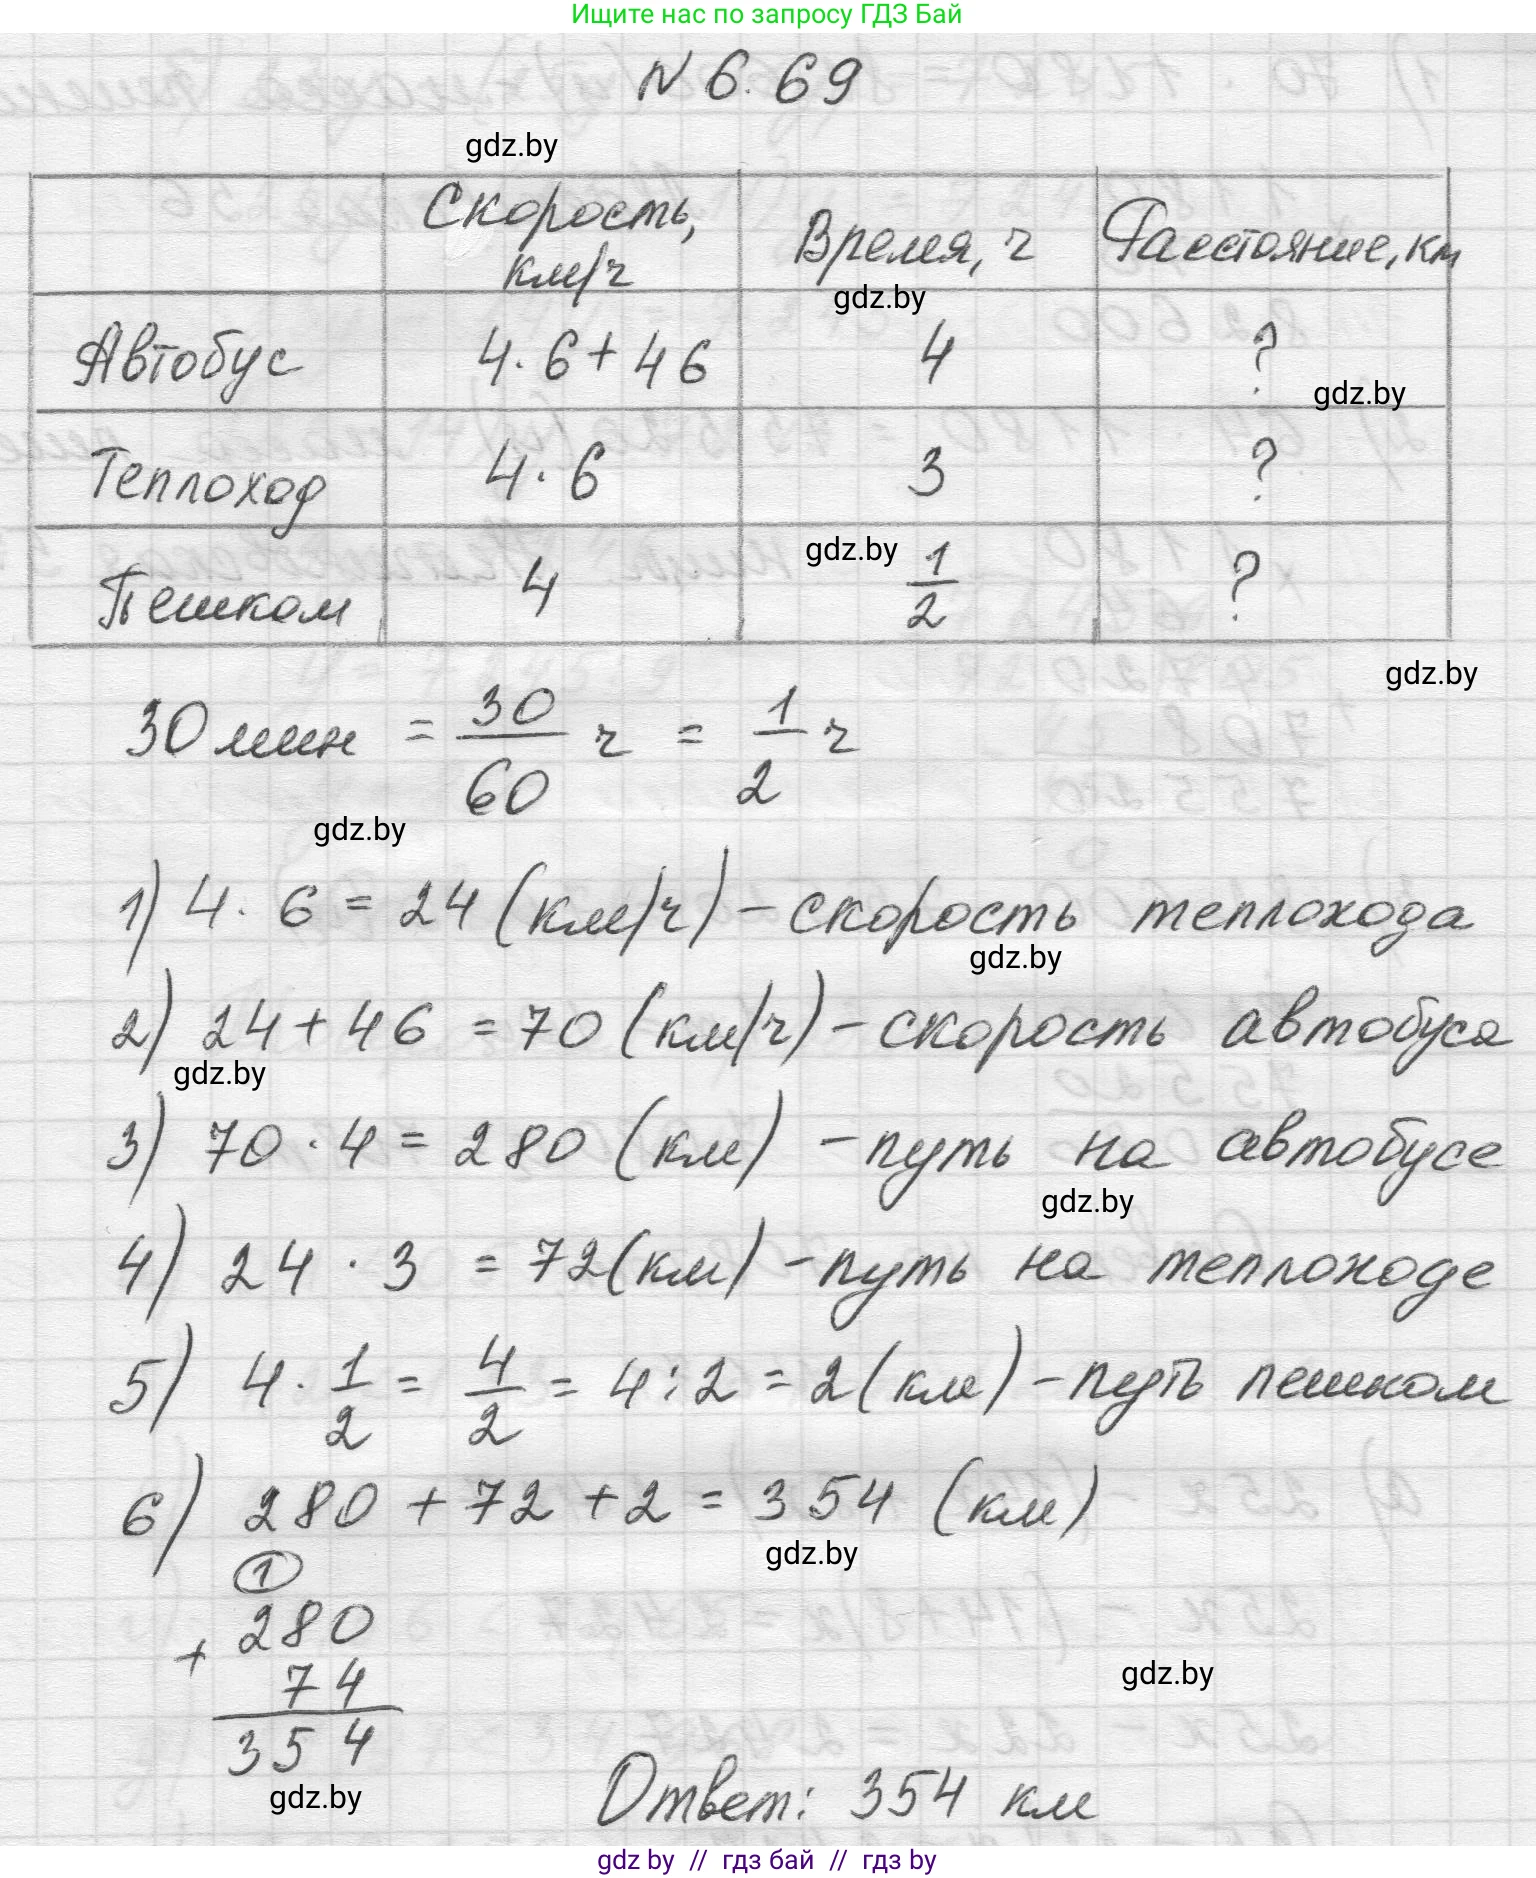 Ищите нас по запросу ГДЗ Бай
№ 6.69
gdz.by
Скорость, км/ч Время, ч Расстояние, км
gdz.by
Автобус 4·6+46 4 ?
gdz.by
Теплоход 4·6 3 ?
gdz.by
Пешком 4 1/2 ?
gdz.by
30 мин = 30/60 ч = 1/2 ч
gdz.by
1) 4·6 = 24 (км/ч) – скорость теплохода
gdz.by
2) 24+46 = 70 (км/ч) – скорость автобуса
gdz.by
3) 70·4 = 280 (км) – путь на автобусе
gdz.by
4) 24·3 = 72 (км) – путь на теплоходе
5) 4·1/2 = 4/2 = 4:2 = 2 (км) – путь пешком
6) 280+72+2 = 354 (км)
gdz.by
1
280
+
74
354
gdz.by
gdz.by
Ответ: 354 км
gdz by // гдз бай // гдз by